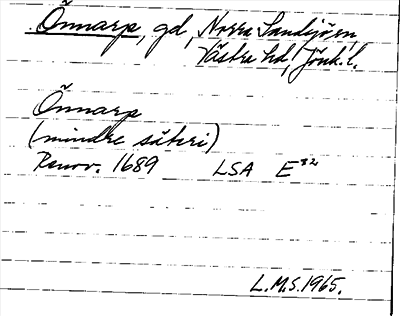 Önnarp, gd, Norra Sandsjö sn,
Västra hd, Jönk. l.
Önnarp
(mindre säteri)
Renov. 1689 LSA E32
L.M.S. 1965.